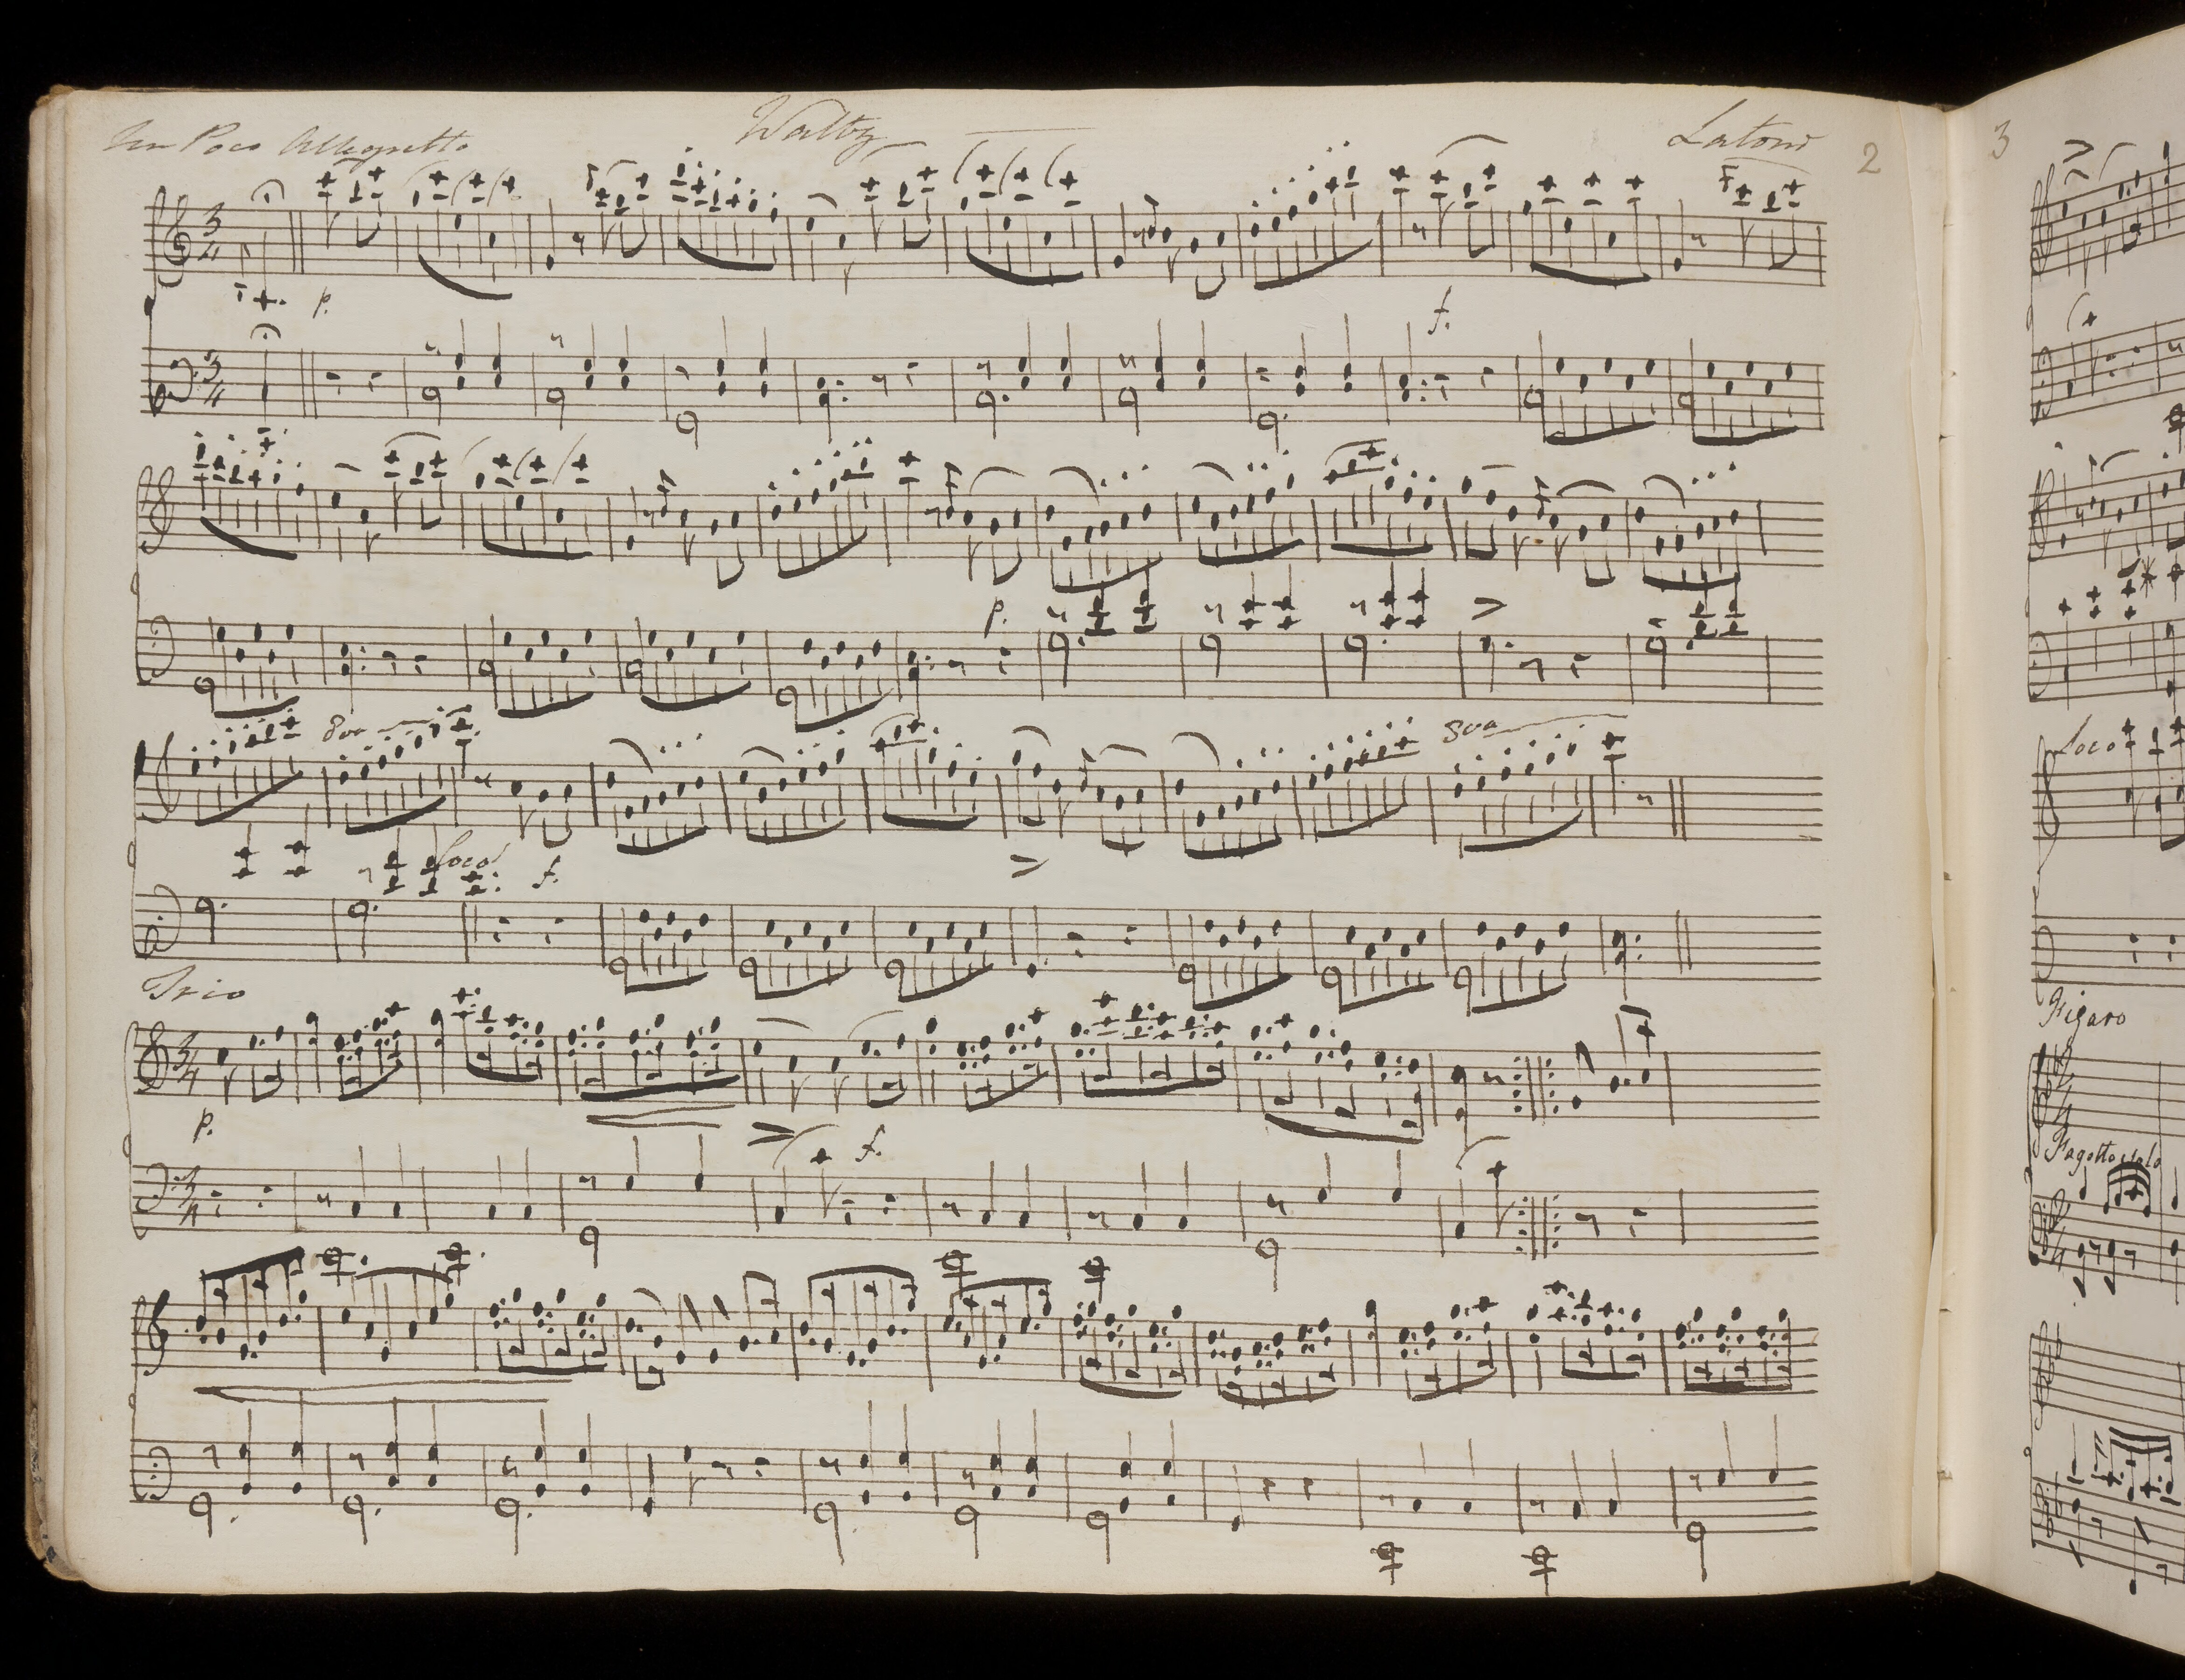 Un Poco Allegretto Waltz Latour 2
3
4
p.
f.
3
4
p.
8va
8va
Loco
f.
Trio
3
4
p.
f.
3
4
3
Loco
Figaro
Fagotto solo